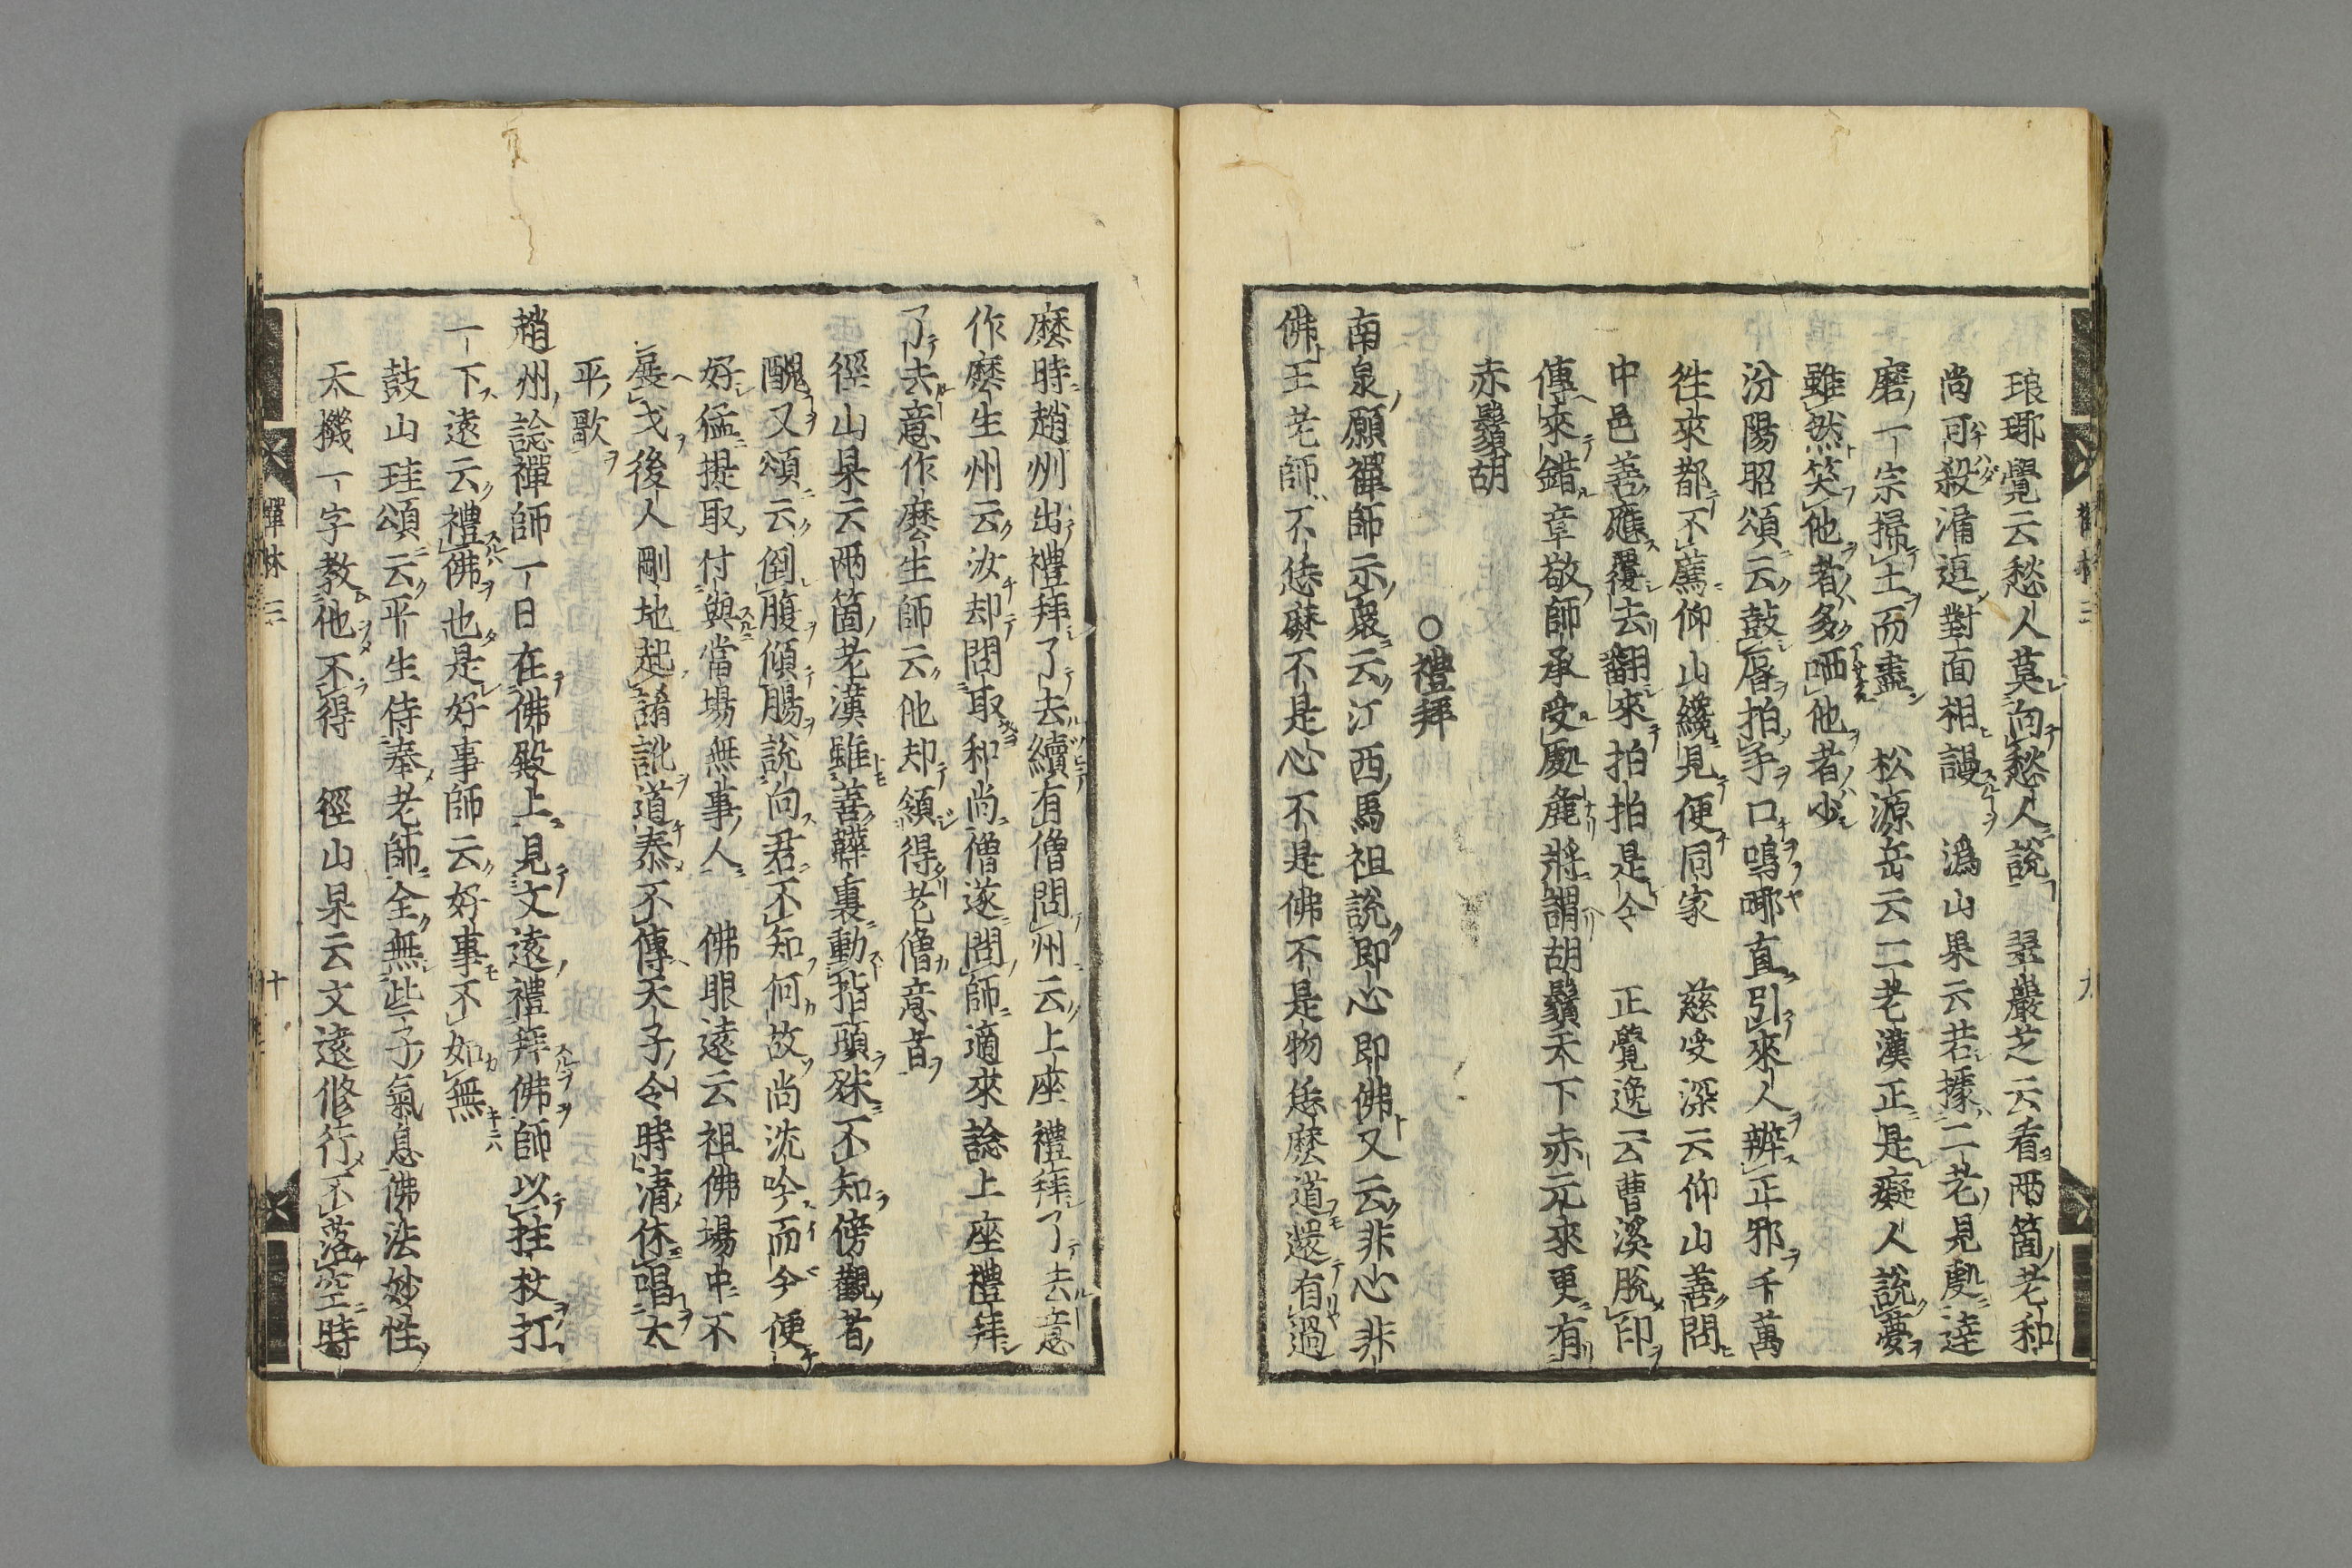 琅琊覺云愁人莫向愁人說　翠巖芝云看兩箇老和
尚可殺漏逗對面相謾　潙山果云若據二老見處達
磨一宗掃土而盡　松源岳云二老漢正是癡人說夢
雖然笑他者多哂他者少
汾陽昭頌云鼓唇拍手口嗚㖿直引來人辨正邪千萬
徃來都不薦仰山纔見便同家　慈受深云仰山善問
中邑善應覆去翻來拍拍是令　正覺逸云曹溪脫印
傳來錯章敬師承受處麁將謂胡鬚天下赤元來更有
赤鬚胡
○禮拜
南泉願禪師示衆云江西馬祖說即心即佛又云非心非
佛王老師不恁麼不是心不是佛不是物恁麼道還有過
麼時趙州出禮拜了去續有僧問州云上座禮拜了去意
作麼生州云汝却問取和尚僧遂問師適來諗上座禮拜
了去意作麼生師云他却領得老僧意旨
徑山杲云兩箇老漢雖善韡裏動指頭殊不知傍觀者
醜又頌云倒腹傾腸說向君不知何故尚沈吟而今便
好猛提取付與當場無事人　佛眼遠云祖佛場中不
展戈後人剛地起誵訛道泰不傳天子令時淸休唱太
平歌
趙州諗禪師一日在佛殿上見文遠禮拜佛師以拄杖打
一下遠云禮佛也是好事師云好事不如無
鼓山珪頌云平生侍奉老師全無些子氣息佛法妙性
天機一字教他不得　徑山杲云文遠修行不落空時
禪林　三　十